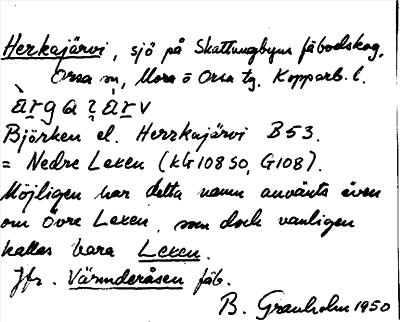 Herkajärvi, sjö på Skattungbyns fäbodskog,
Orsa sn, Mora o Orsa tg. Kopparb. l.
Björken el. Herrkajärvi B53.
= Nedre Lexen (KG108 SO, G108).
Möjligen har detta namn använts även
om Övre Lexen, som dock vanligen
kallas bara Lexen.
Jfr. Värmderåsen fäb.
B. Granholm 1950